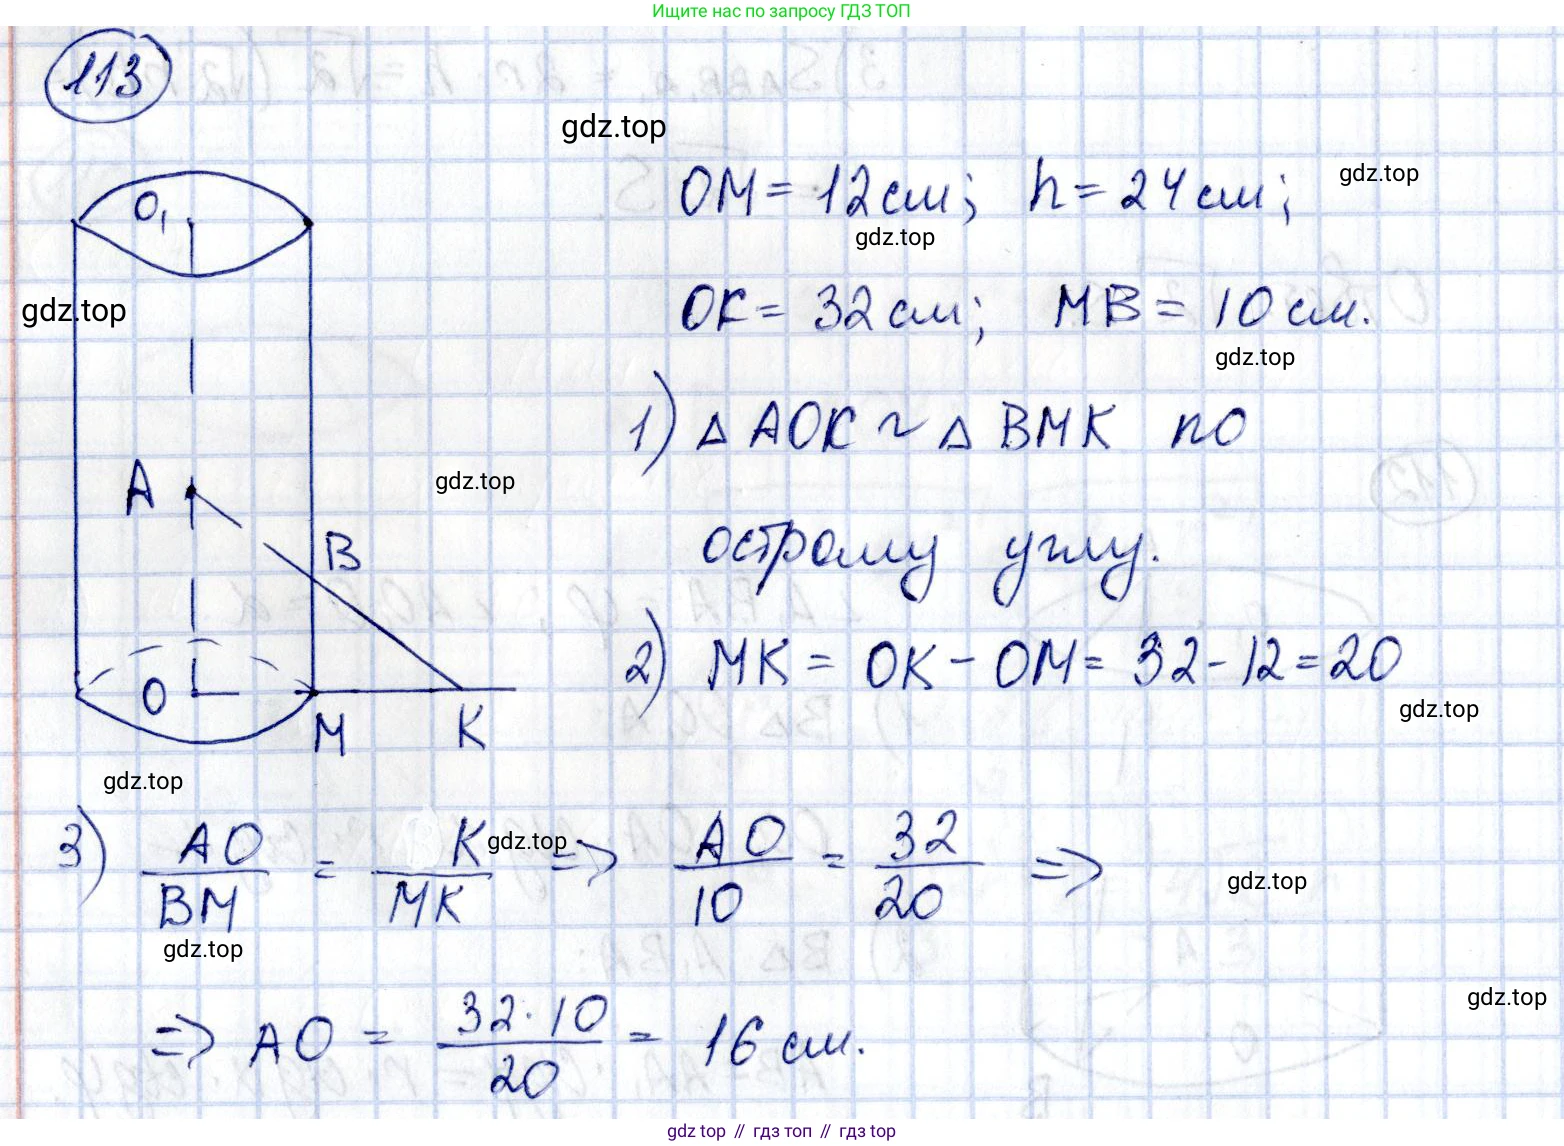 Ищите нас по запросу ГДЗ ТОП
113
gdz.top
OM = 12 см; h = 24 см;
gdz.top
gdz.top
O₁
OK = 32 см; MB = 10 см.
gdz.top
gdz.top
1) △ AOK ~ △ BMK по
A
gdz.top
B
острому углу.
2) MK = OK - OM = 32 - 12 = 20
gdz.top
O
M
K
gdz.top
3) AO/BM = K/MK => AO/10 = 32/20 =>
gdz.top
gdz.top
gdz.top
gdz.top
=> AO = 32·10/20 = 16 см.
gdz top // гдз топ // гдз top